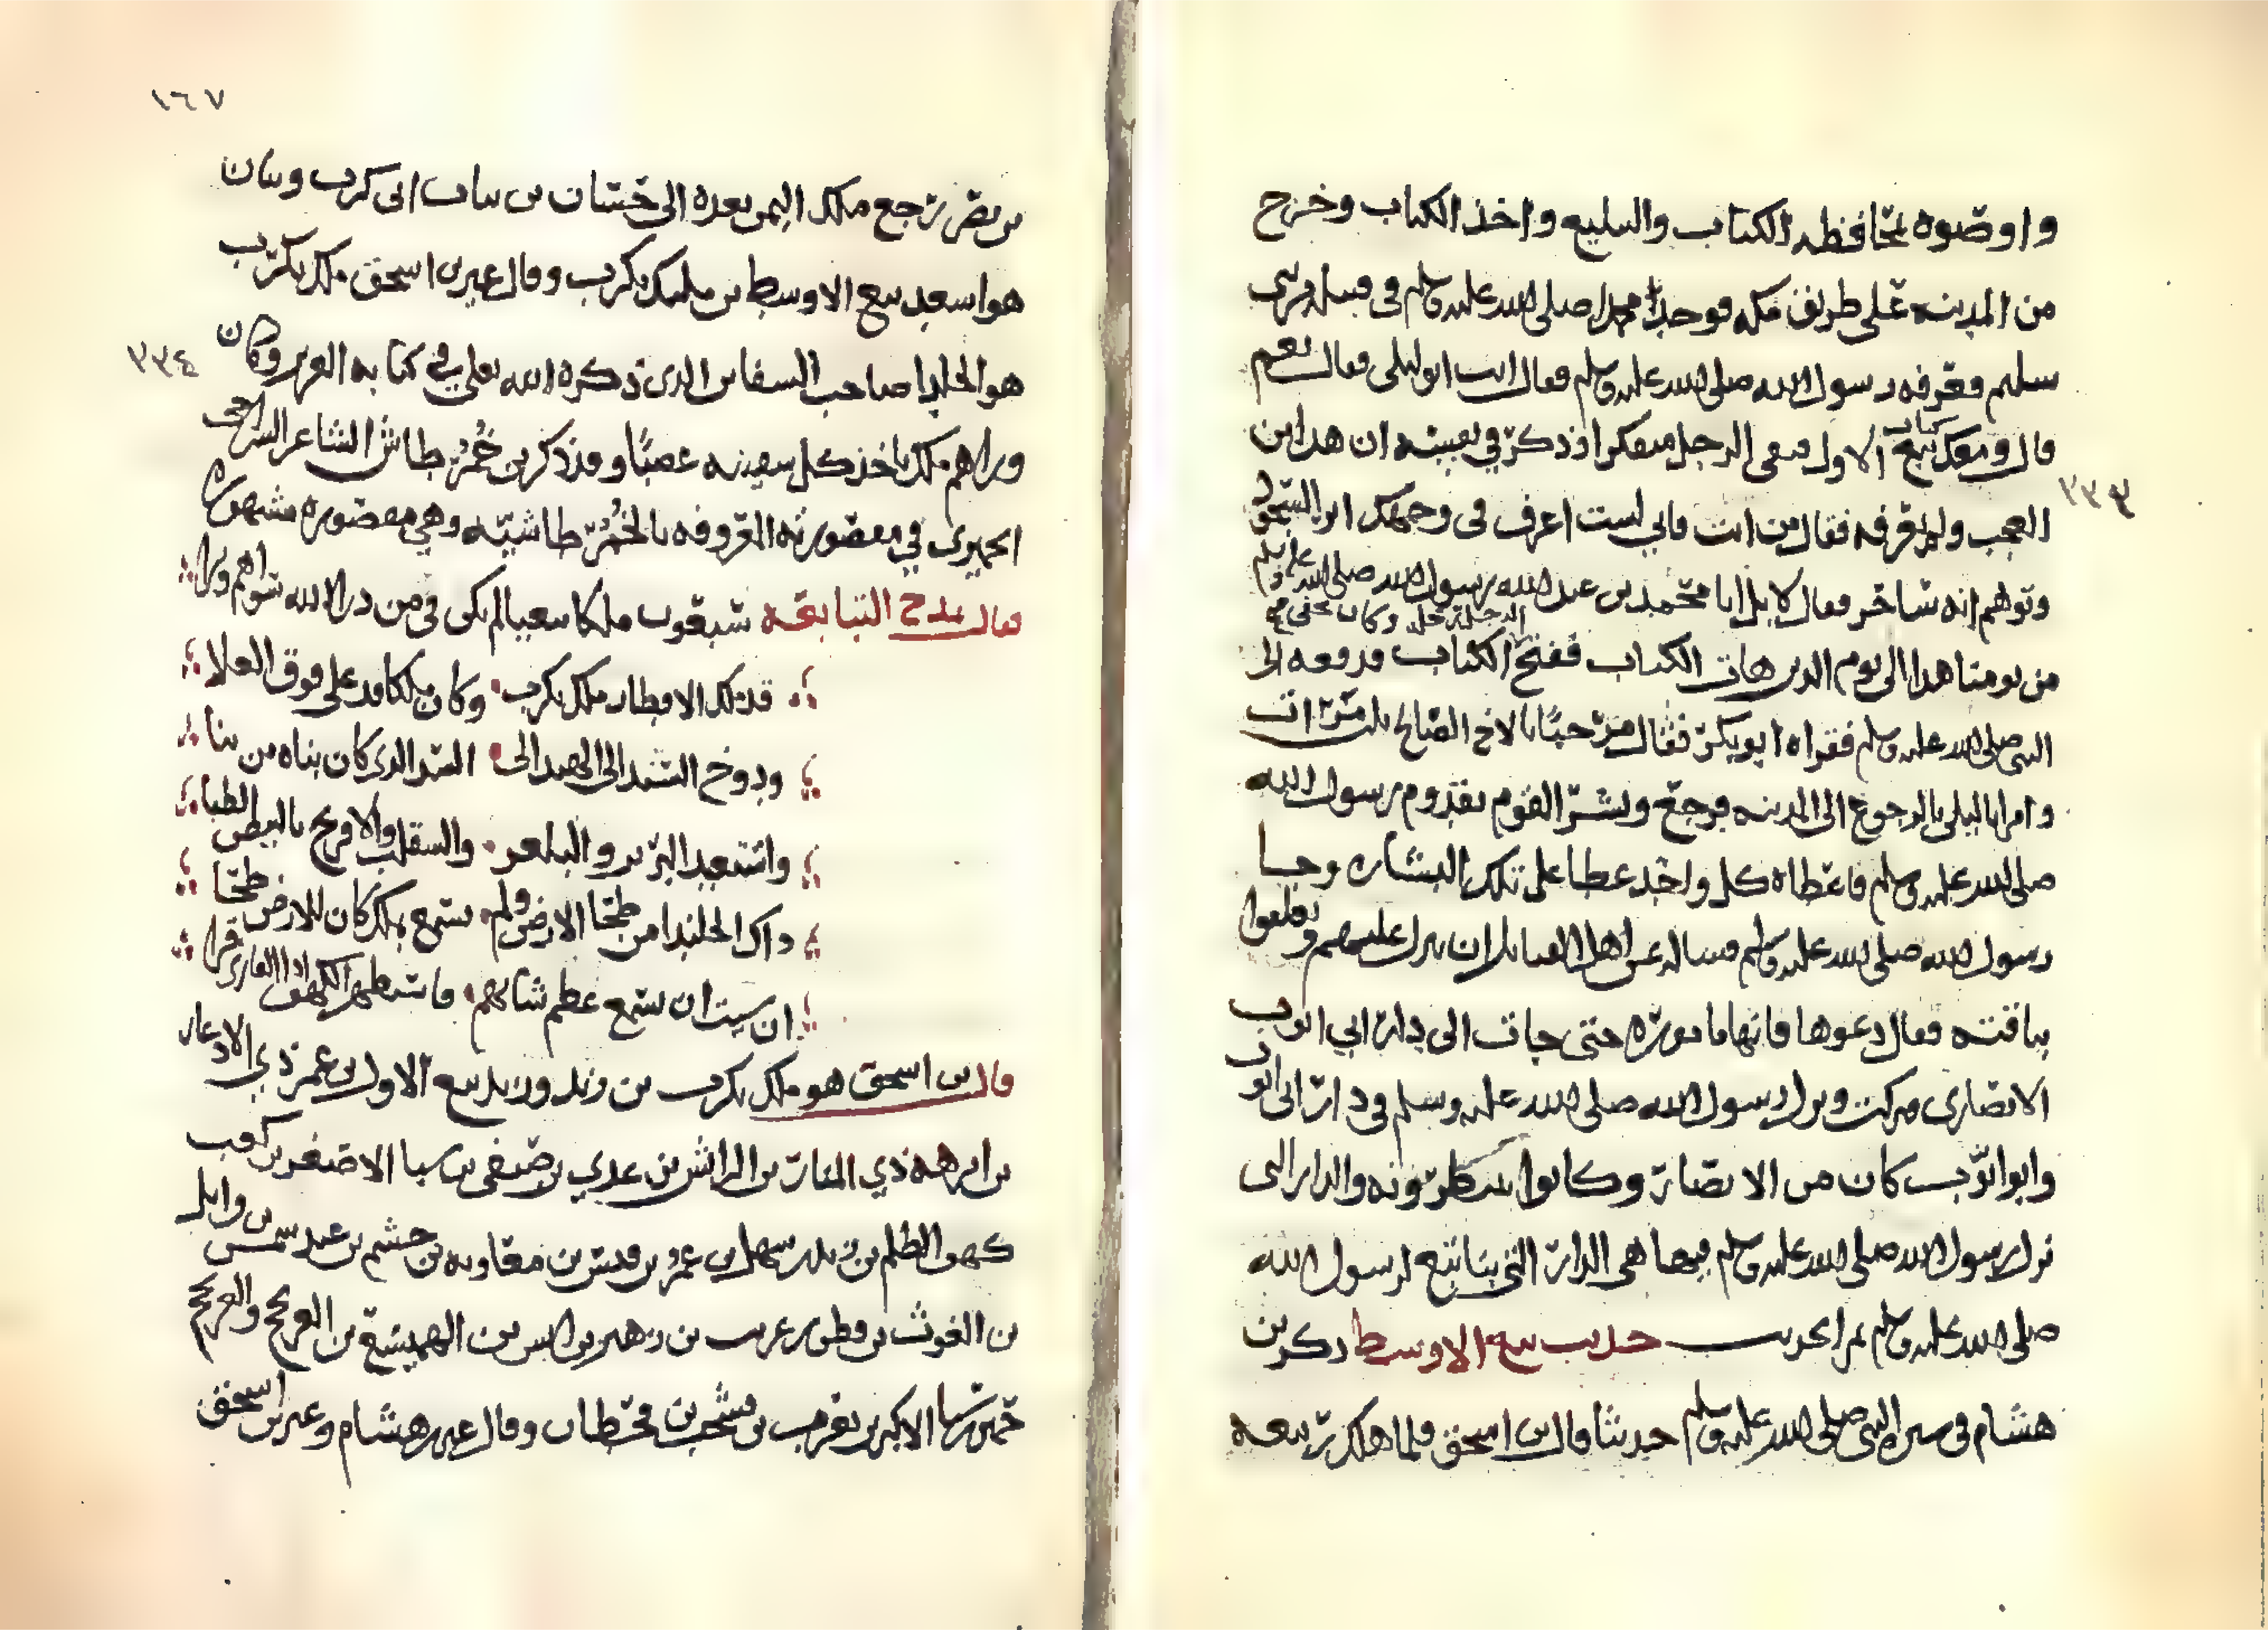 واوصوه بمحافظه الكتاب والتبليغ واخذ الكتاب وخرج
من المدينه على طريق مكه فوجد محمدا صلى الله عليه وسلم فى قبيله من بنى
سليم فعرفه رسول الله صلى الله عليه وسلم فقال انت ابو ليلى فقال نعم
قال ومعك كتاب تبع الاول فبقى الرجل متفكرا وذكر في نفسه ان هذا من
العجب ولم يعرفه فقال من انت فاني لست اعرف فى وجهك اثر السحر
وتوهم انه ساحر فقال لا بل انا محمد بن عبد الله رسول الله صلى الله عليه وسلم
الرحل رحله وكان يخفى
من يومنا هذا الى يوم الدين هات الكتاب ففتح الكتاب فدفعه الى
النبي صلى الله عليه وسلم فقراه ابو بكر فقال مرحبا بالاخ الصالح ثلاث مرات
وامر ابا ليلى بالرجوع الى المدينه فرجع وبشر القوم بقدوم رسول الله
صلى الله عليه وسلم فاعطاه كل واحد عطا على تلك البشاره وجا
رسول الله صلى الله عليه وسلم فساله عن اهل القبايل ان ينزل عليهم وتعلقوا
بناقته فقال دعوها فانها مامورة حتى جات الى دار ابي ايوب
الانصارى فبركت ونزل رسول الله صلى الله عليه وسلم فى دار ابى ايوب
وابو ايوب كان من الانصار وكانوا ينتظرونه والدار التى
نزل رسول الله صلى الله عليه وسلم فيها هى الدار التي بنا تبع لرسول الله
صلى الله عليه وسلم تم الحديث حديث تبع الاوسط ذكر بن
هشام فى سيرة النبي صلى الله عليه وسلم حديثا قال بن اسحق فلما هلك ربيعه
٣٣٣
١٦٧
بن نصر رجع ملك اليمن بعده الى حسان بن تبان ابى كرب وتبان
هو اسعد تبع الاوسط بن ملكيكرب وقال غير بن اسحق ملك يكرب
هو الجلندا صاحب السفاين الذى ذكره الله تعلى في كتابه العزيز وكان
وراهم ملك ياخذ كل سفينه غصبًا وقد ذكر بن خُمُرْ طاش الشاعر السراحى
الحميرى في مقصورته المعروفه بالخُمُرّ طاشيّه وهي مقصوره مشهوره
فقال يمدح التبابعه سبعون ملكا تبعيا لم يكن فى من درا الله سواهم ويرا
قد ملك الاقطار ملك يكرب وكان ملكا قد على فوق العلا
ودوخ السند الى الهند الى السد الذى كان بناه من بنا
واستعبد البربر والبلغر والسقلب والافرنج بالبيض الظبا
وذاك الجلندا من طحا الارض ولم يسمع بملك كان للارض طحا
ان شيت ان تسمع عظم شانهم فاستظهر الكهف اذا القارى قرا
قال بن اسحق هو ملك يكرب بن زيد وزيد تبع الاول بن عمر ذي الاذعار
بن ابرهه ذي المنار بن الرائش بن عدي بن صيفى بن سبا الاصغر بن كعب
كهف الظلم بن زيد بن سهل بن عمرُ بن قيس بن معاويه بن جشم بن عبد شمس بن وايل
بن الغوث بن قطن بن عريب بن زهير بن ايمن بن الهميسع بن العرنجج والعرنجج
حمير بن سبا الاكبر بن يعرب بن يشجب بن قحطان وقال غير بن هشام وغير بن اسحق
٣٣٤